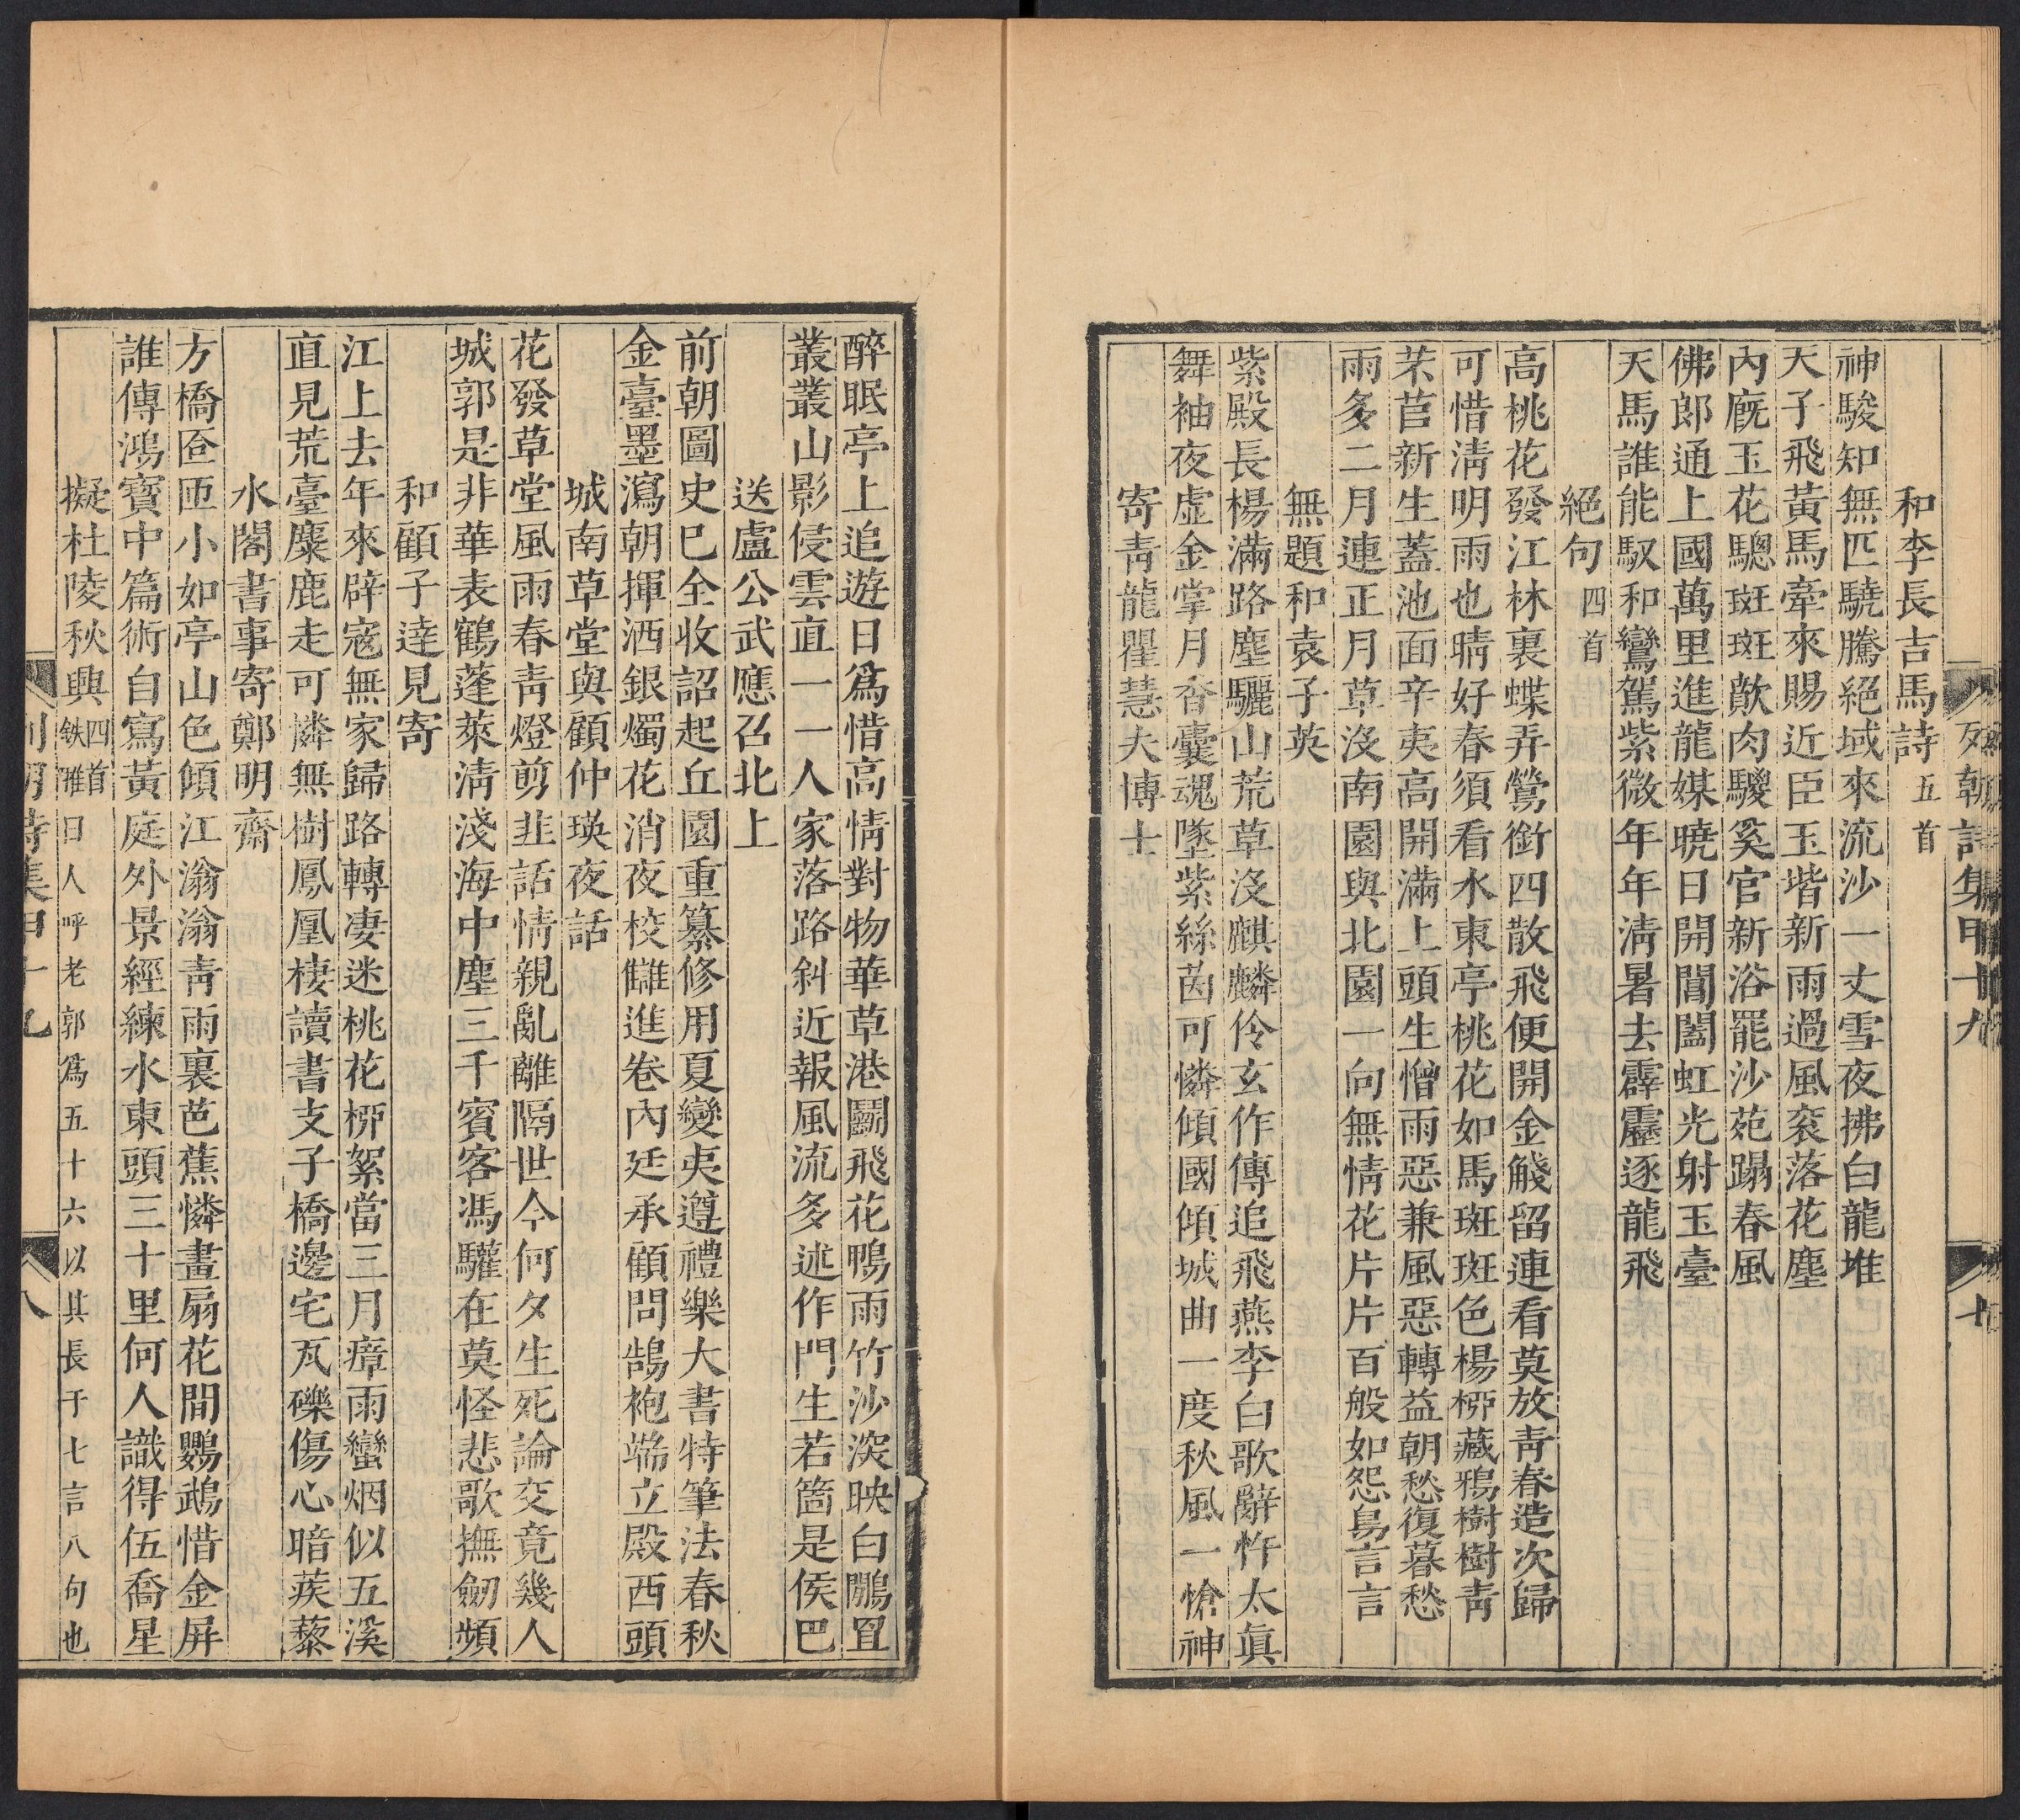 列朝詩集甲十九 七
和李長吉馬詩五首
神駿知無匹驍騰絕域來流沙一丈雪夜拂白龍堆
天子飛黃馬牽來賜近臣玉堦新雨過風衮落花塵
內廐玉花驄斑斑歕肉騣奚官新浴罷沙苑蹋春風
佛郎通上國萬里進龍媒曉日開閶闔虹光射玉臺
天馬誰能馭和鸞駕紫微年年淸暑去霹靂逐龍飛
絕句四首
高桃花發江林裏蝶弄鶯銜四散飛便開金觴留連看莫放靑春造次歸
可惜淸明雨也晴好春須看水東亭桃花如馬斑斑色楊桺藏鴉樹樹靑
芣苢新生蓋池面辛夷高開滿上頭生憎雨惡兼風惡轉益朝愁復暮愁
雨多二月連正月草沒南園與北園一向無情花片片百般如怨鳥言言
無題和袁子英
紫殿長楊滿路塵驪山荒草沒麒麟伶玄作傳追飛燕李白歌辭忤太眞
舞袖夜虛金掌月香囊魂墜紫絲茵可憐傾國傾城曲一度秋風一愴神
寄靑龍瞿慧夫博士
醉眠亭上追遊日爲惜高情對物華草港鬭飛花鴨雨竹沙深映白鷴罝
叢叢山影侵雲直一一人家落路斜近報風流多述作門生若箇是侯巴
送盧公武應召北上
前朝圖史巳全收詔起丘園重纂修用夏變夷遵禮樂大書特筆法春秋
金臺墨瀉朝揮洒銀燭花消夜校讎進卷內廷承顧問鵠袍端立殿西頭
城南草堂與顧仲瑛夜話
花發草堂風雨春靑燈剪韭話情親亂離隔世今何夕生死論交竟幾人
城郭是非華表鶴蓬萊淸淺海中塵三千賓客馮驩在莫怪悲歌撫劒頻
和顧子達見寄
江上去年來辟寇無家歸路轉凄迷桃花桺絮當三月瘴雨蠻烟似五溪
直見荒臺麋鹿走可憐無樹鳳凰棲讀書支子橋邊宅瓦礫傷心暗蒺藜
水閣書事寄鄭明齋
方橋匼匝小如亭山色傾江滃滃靑雨裏芭蕉憐畫扇花間鸚鵡惜金屏
誰傳鴻寶中篇術自寫黃庭外景經練水東頭三十里何人識得伍喬星
擬杜陵秋興四首鉄雅曰人呼老郭爲五十六以其長于七言八句也
列朝詩集甲十九 八